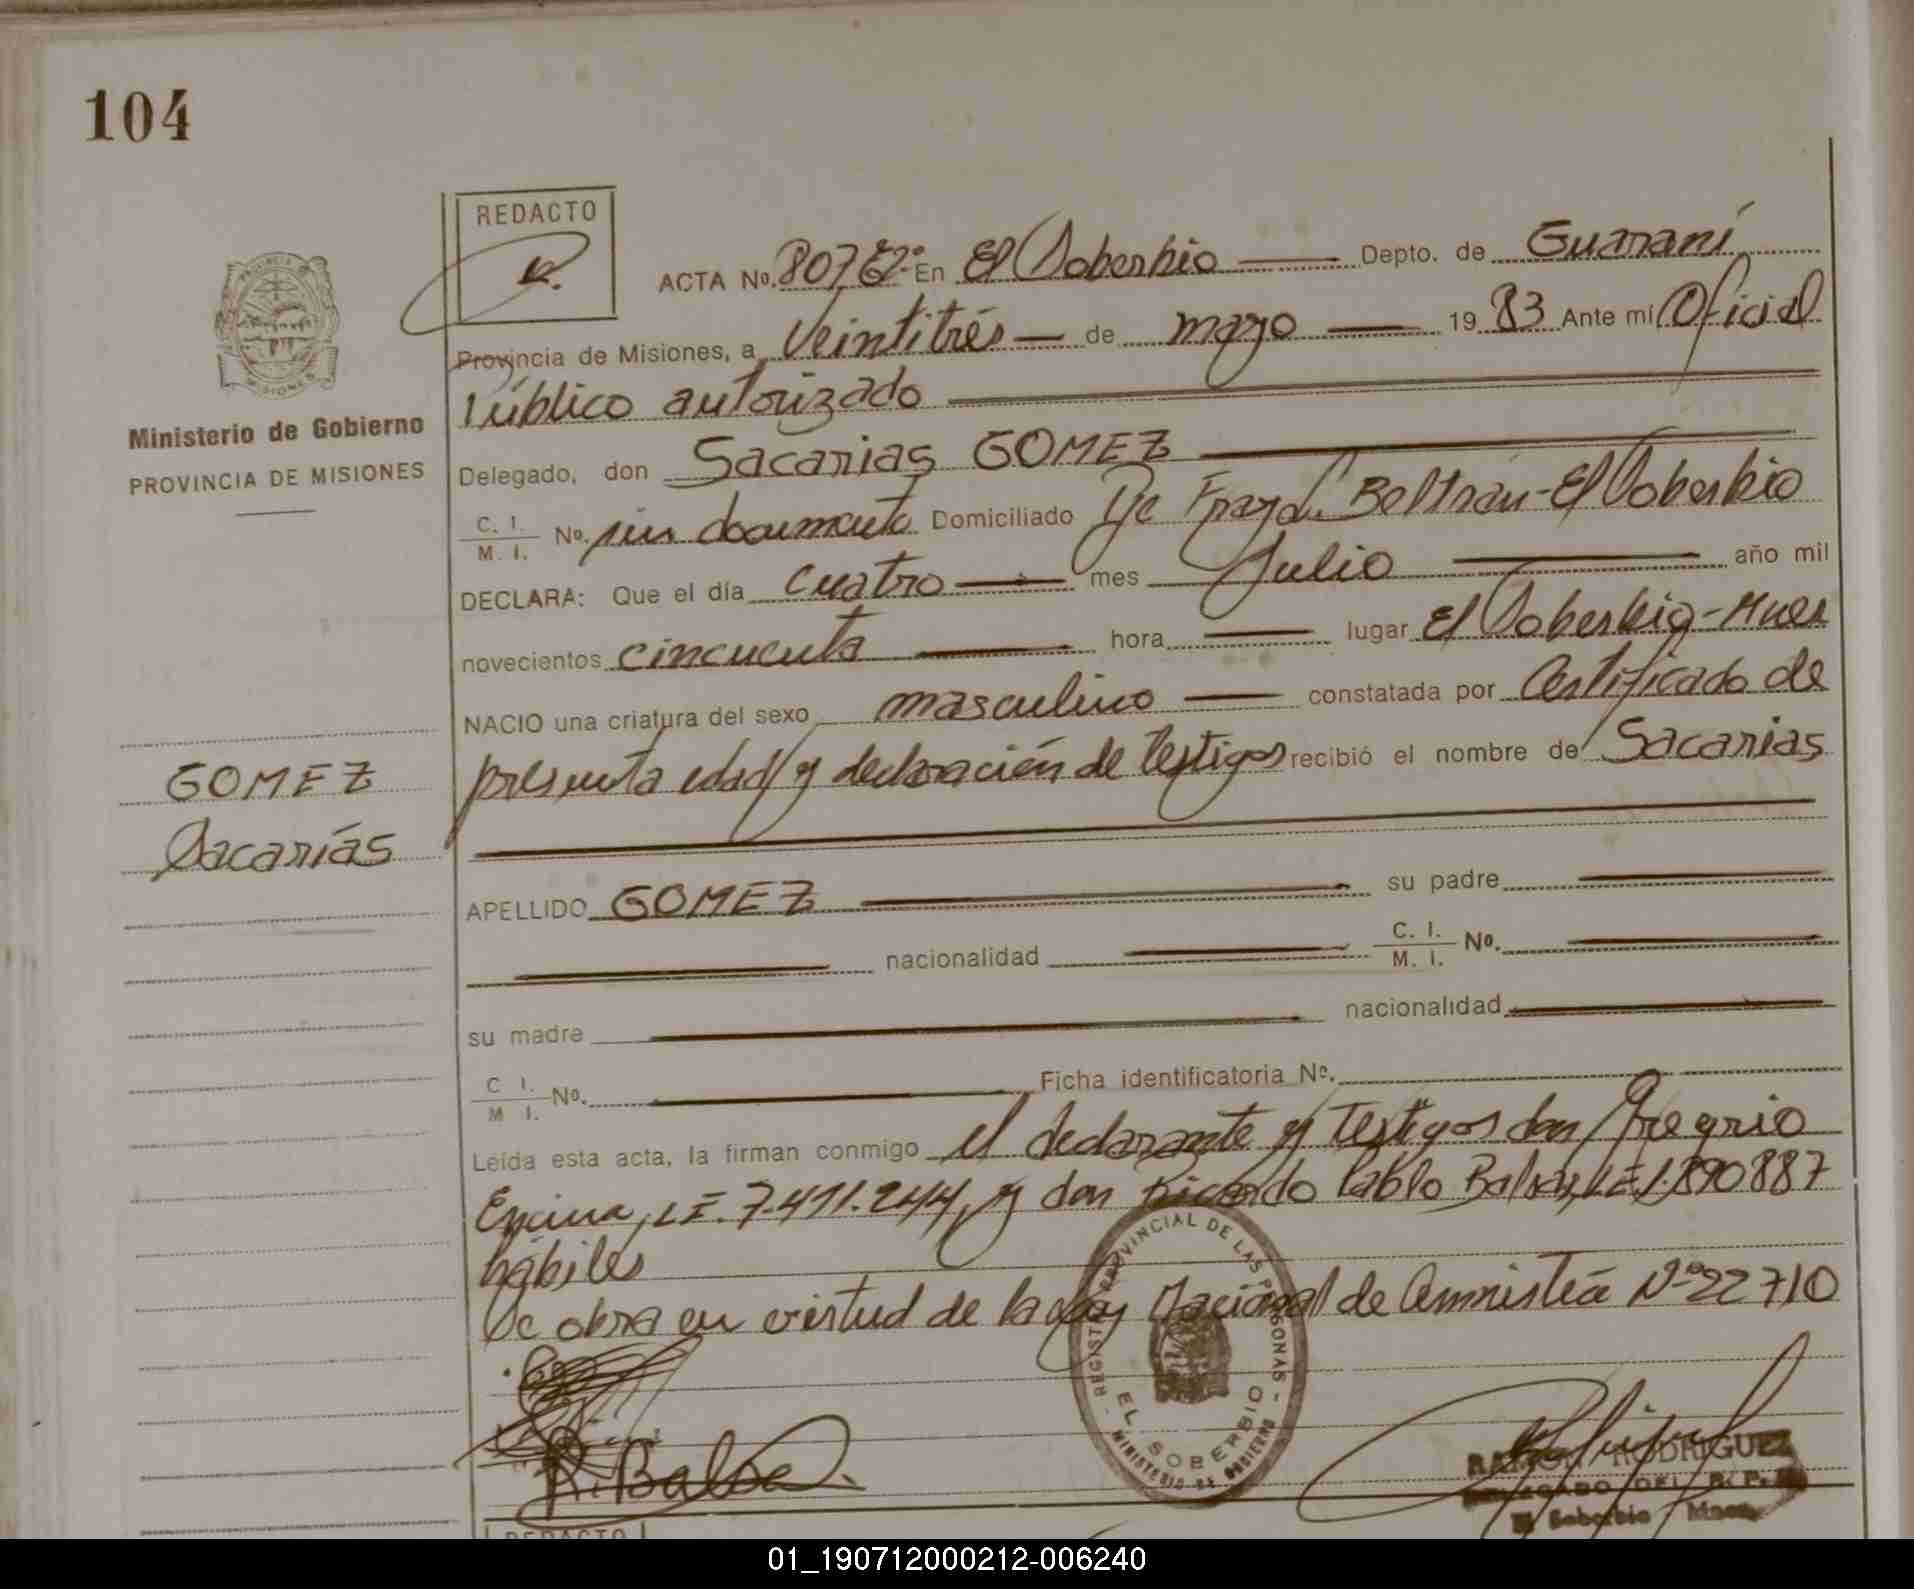 104
REDACTO
ACTA Nº. 807 Eº En El Soberbio Depto. de Guaraní
Provincia de Misiones, a Veintitrés de mayo 1983 Ante mí, Oficial
Público autorizado
Delegado, don Sacarias GOMEZ
C. I.
M. I. Nº. sin documento Domiciliado Bº Fray L. Beltrán-El Soberbio
DECLARA: Que el día cuatro mes Julio año mil
novecientos cincuenta hora lugar El Soberbio-Mnes
NACIO una criatura del sexo masculino constatada por Certificado de
presunta edad y declaración de testigos recibió el nombre de Sacarias
APELLIDO GOMEZ su padre
nacionalidad C. I.
M. I. Nº.
su madre nacionalidad
C I.
M I. Nº. Ficha identificatoria Nº.
Leída esta acta, la firman conmigo el declarante y testigos don Gregrio
Encina, LE. 7.411.244, y don Ricardo Pablo Balsa, LE 1.890887
hábiles
Se obra en virtud de la Ley Nacional de Amnistía Nº 22710
R. Balsa
Ministerio de Gobierno
PROVINCIA DE MISIONES
GOMEZ
Sacariás
PROVINCIA DE
MISIONES
REGISTRO PROVINCIAL DE LAS PERSONAS
EL SOBERBIO
MINISTERIO DE GOBIERNO
RAMON RODRIGUEZ
DELEGADO DEL R. P.
El Soberbio Mnes
REDACTO
01_190712000212-006240